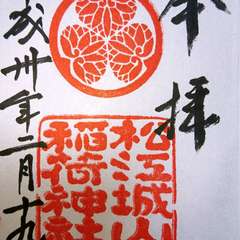 奉拝
松江城山
稲荷神社
成卅年二月十九